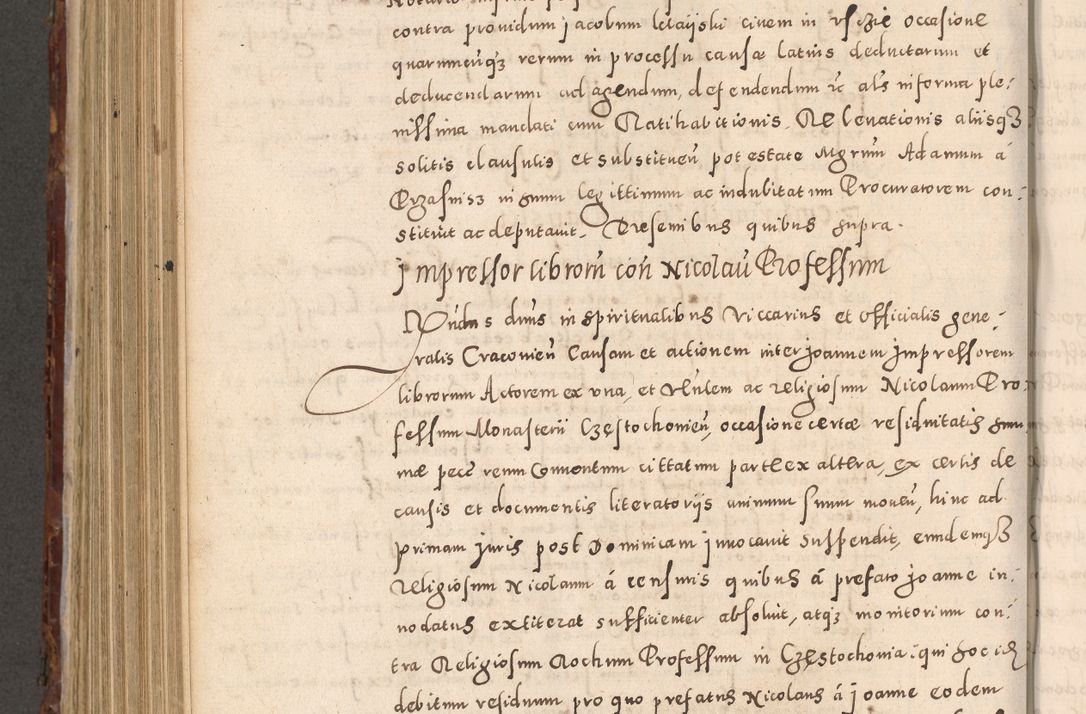 contra providum Jacobum letaijski civem in Vsczie occasione
quarumcunq3 rerum in processu causæ latius deductarum et
deducendarum ad agendum, defendendum &c als in forma ple:
nissima mandati cum Ratihabitionis, Relevationis aliisq3
solitis clausulis et substituen̄ potestate Mgrum Adamum á
legittimum ac indubitatum Procuratorem con:
stituit ac deputavit. Presentibus quibus supra.
Impressor librorū con̄ Nicolau Professum
Rndus dnus in spiritualibus Viccarius et officialis gene:
ralis Cracovien̄ Causam et actionem inter Joannem Impressorem
librorum Actorem ex una, et ac religiosum Nicolaum Pro:
fessum Monasterii Częstochovien̄, occasione certæ residuitatis sum
mæ pecc reum Conventum cittatum parte ex altera, ex certis de
causis et documentis literatorijs animum suum moven̄, hinc ad
primam Juris post Dominicam Invocavit suspendit, eundemq3
religiosum Nicolaum á censuris quibus á prefato Joanne in:
nodatus extiterat sufficienter absolvit, atq3 monitorium con:
tra Religiosum Rochum Professum in Częstochovia: qui hoc id
debitum residuum pro quo prefatus Nicolaus á Joanne eodem